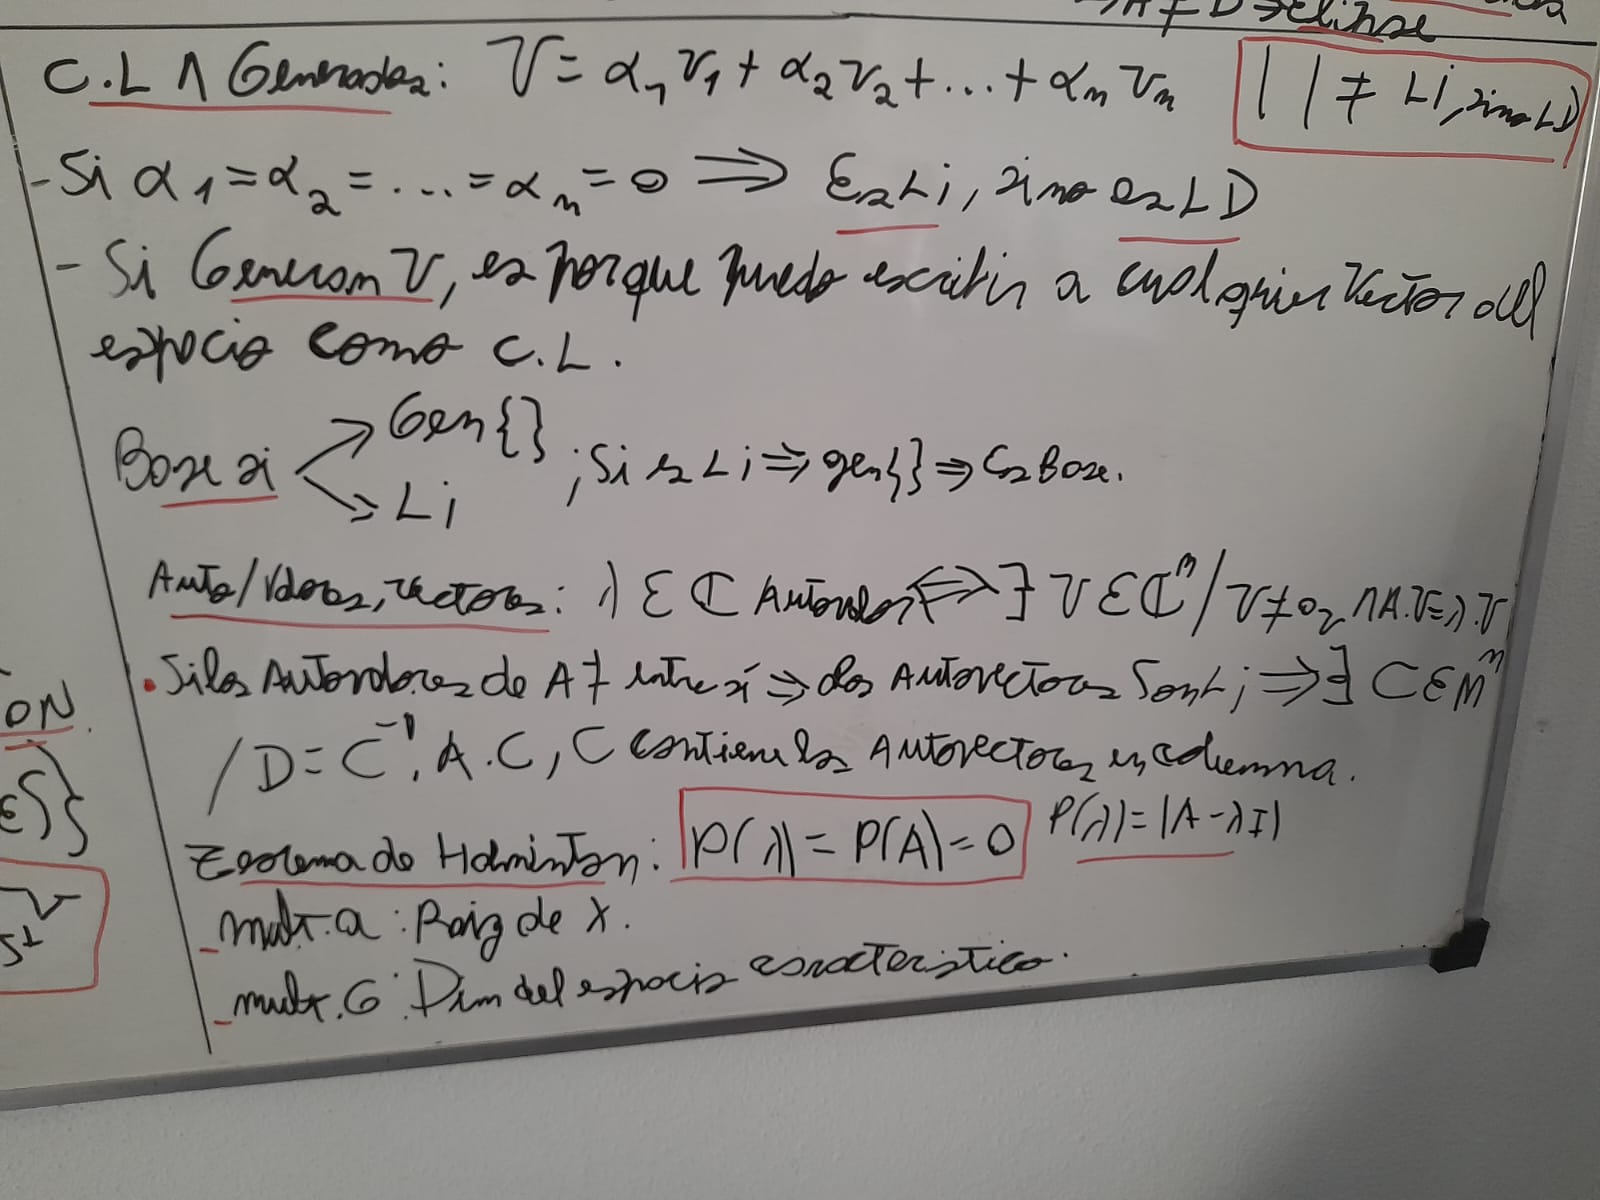 ⇒ A ≠ D ⇒ Elipse
C.L ∧ Generados: V = α₁v₁ + α₂v₂ + ... + αₙvₙ
| | ≠ Li, sino LD
- Si α₁ = α₂ = ... = αₙ = 0 ⇒ Es Li, sino es LD
- Si Generan V, es porque puedo escribir a cualquier vector del
espacio como C.L.
Base si → Gen{} → Li ; Si es Li ⇒ gen{} ⇒ Es Base.
Auto/Valores, vectores: λ ∈ ℂ Autovalor ⟺ ∃ V ∈ ℂⁿ / V ≠ 0ᵥ ∧ A.V = λ.V
. Si los Autovalores de A ≠ entre sí ⇒ los Autovectores Son Li ⇒ ∃ C ∈ Mⁿ
/ D = C⁻¹. A . C, C contiene los Autovectores en columna.
Teorema de Halminton: P(λ) = P(A) = 0 P(λ) = |A - λI|
- mult. a : Raiz de X.
- mult. G : Dim del espacio característico.
ON
S}
V
S⊥